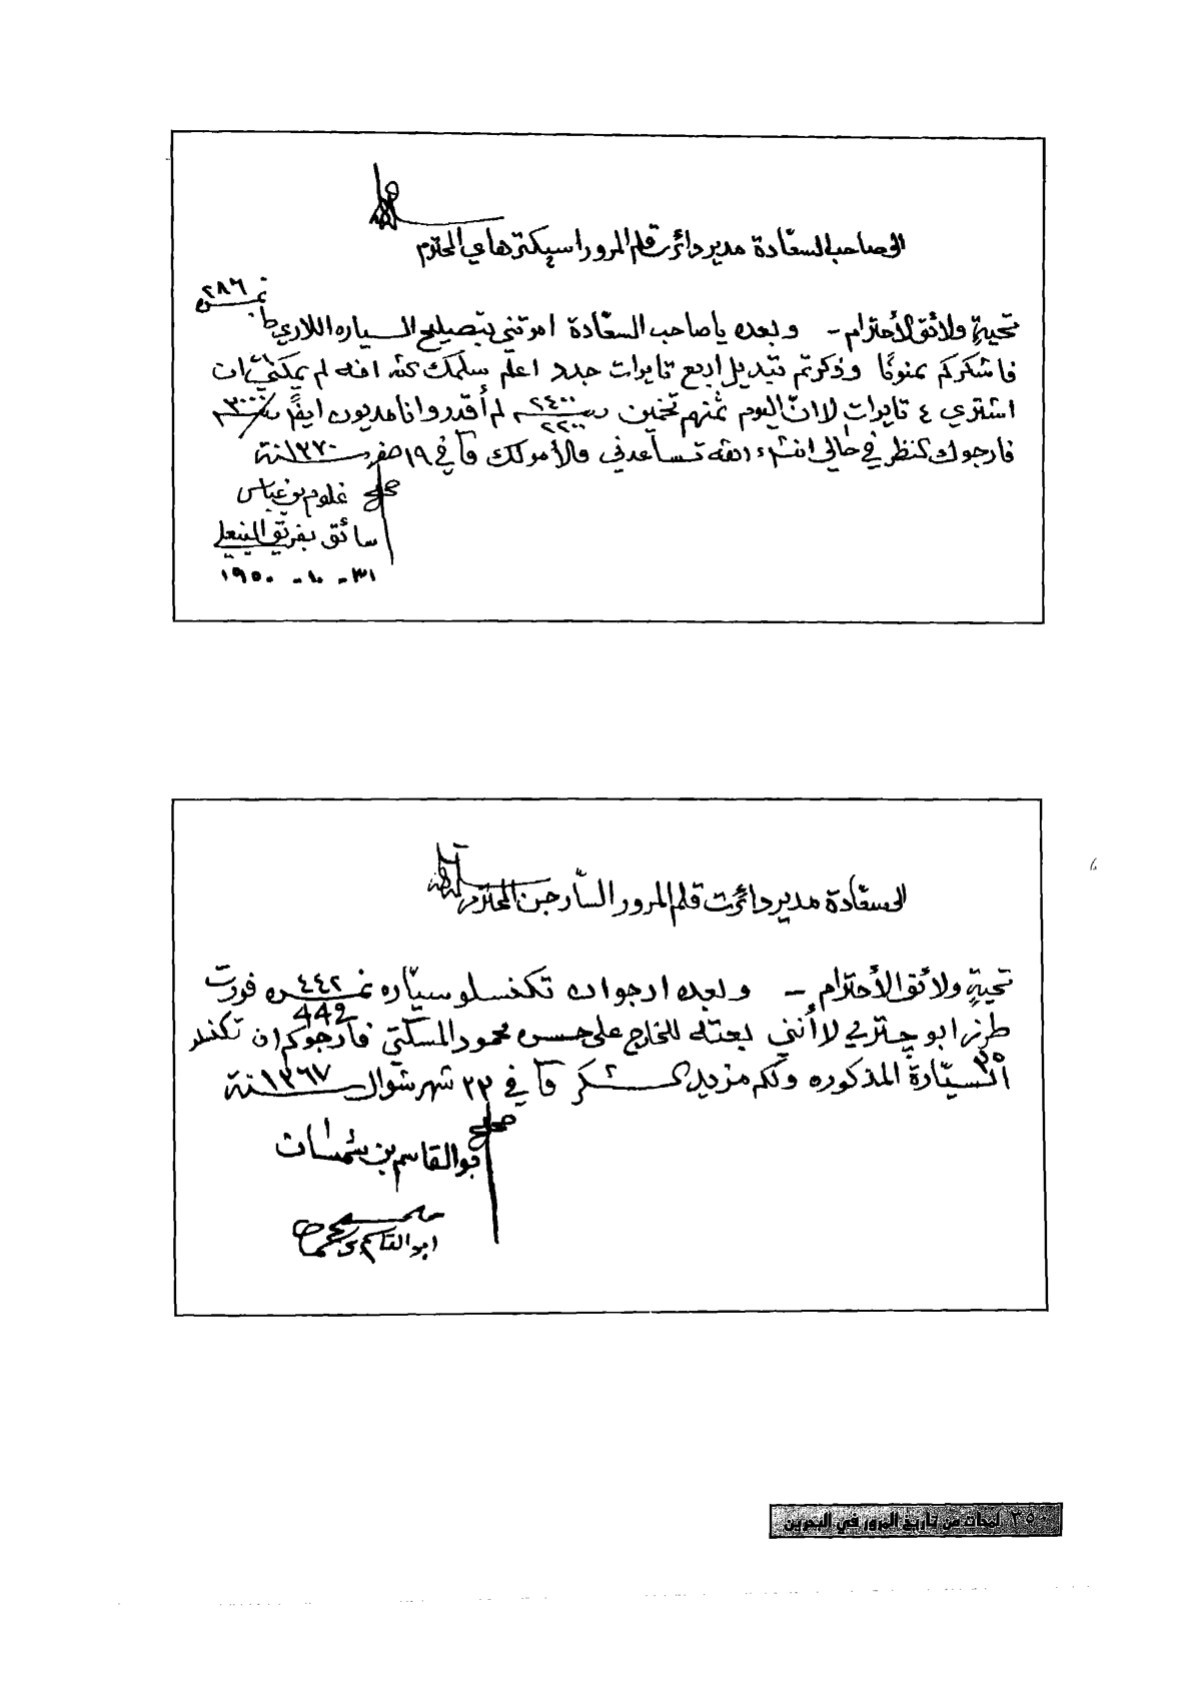 الى صاحب السعادة مدير دائرت قلم المرور اسپكتر هاي المحترم
نمره ٢٨٦
تحية ولائق الأحترام - وبعده يا صاحب السعادة امرتني بتصليح السياره اللاري
فاشكركم ممنونًا وذكرتم تبديل اربع تايرات جدد اعلم سلمك الله انه لم يمكنني ان
اشتري ٤ تايرات لاانّ اليوم ثمنهم تخمين ٢٤٠٠ ٢٢٠٠ لم أقدر وانا مديون ايضًا ٣٠٠٠
فارجوك تنظر في حالي انشاء الله تساعدني والأمر لك في ١٩ صفر سنة ١٣٧٠
صح غلوم بن عباس
سائق بفريق البنعلي
٣١ - ١٠ - ١٩٥٠
الى سعادة مدير دائرت قلم المرور السارجن المحترم
تحية ولائق الأحترام - وبعده ارجو ان تكنسلو سيّاره نمره ٤٤٢ فورت
442
طرز ابو چتري لاأنني بعته للخارج على حسن محمود المسكتي فأرجوكم ان تكنسلو
٣٥
السيّارة المذكوره ولكم مزيد الشكر في ٢٣ شهر شوال سنة ١٣٦٧
صح
بو القاسم بن شمسان
ابو القاسم
٣٥٠ لمحات من تاريخ المرور في البحرين